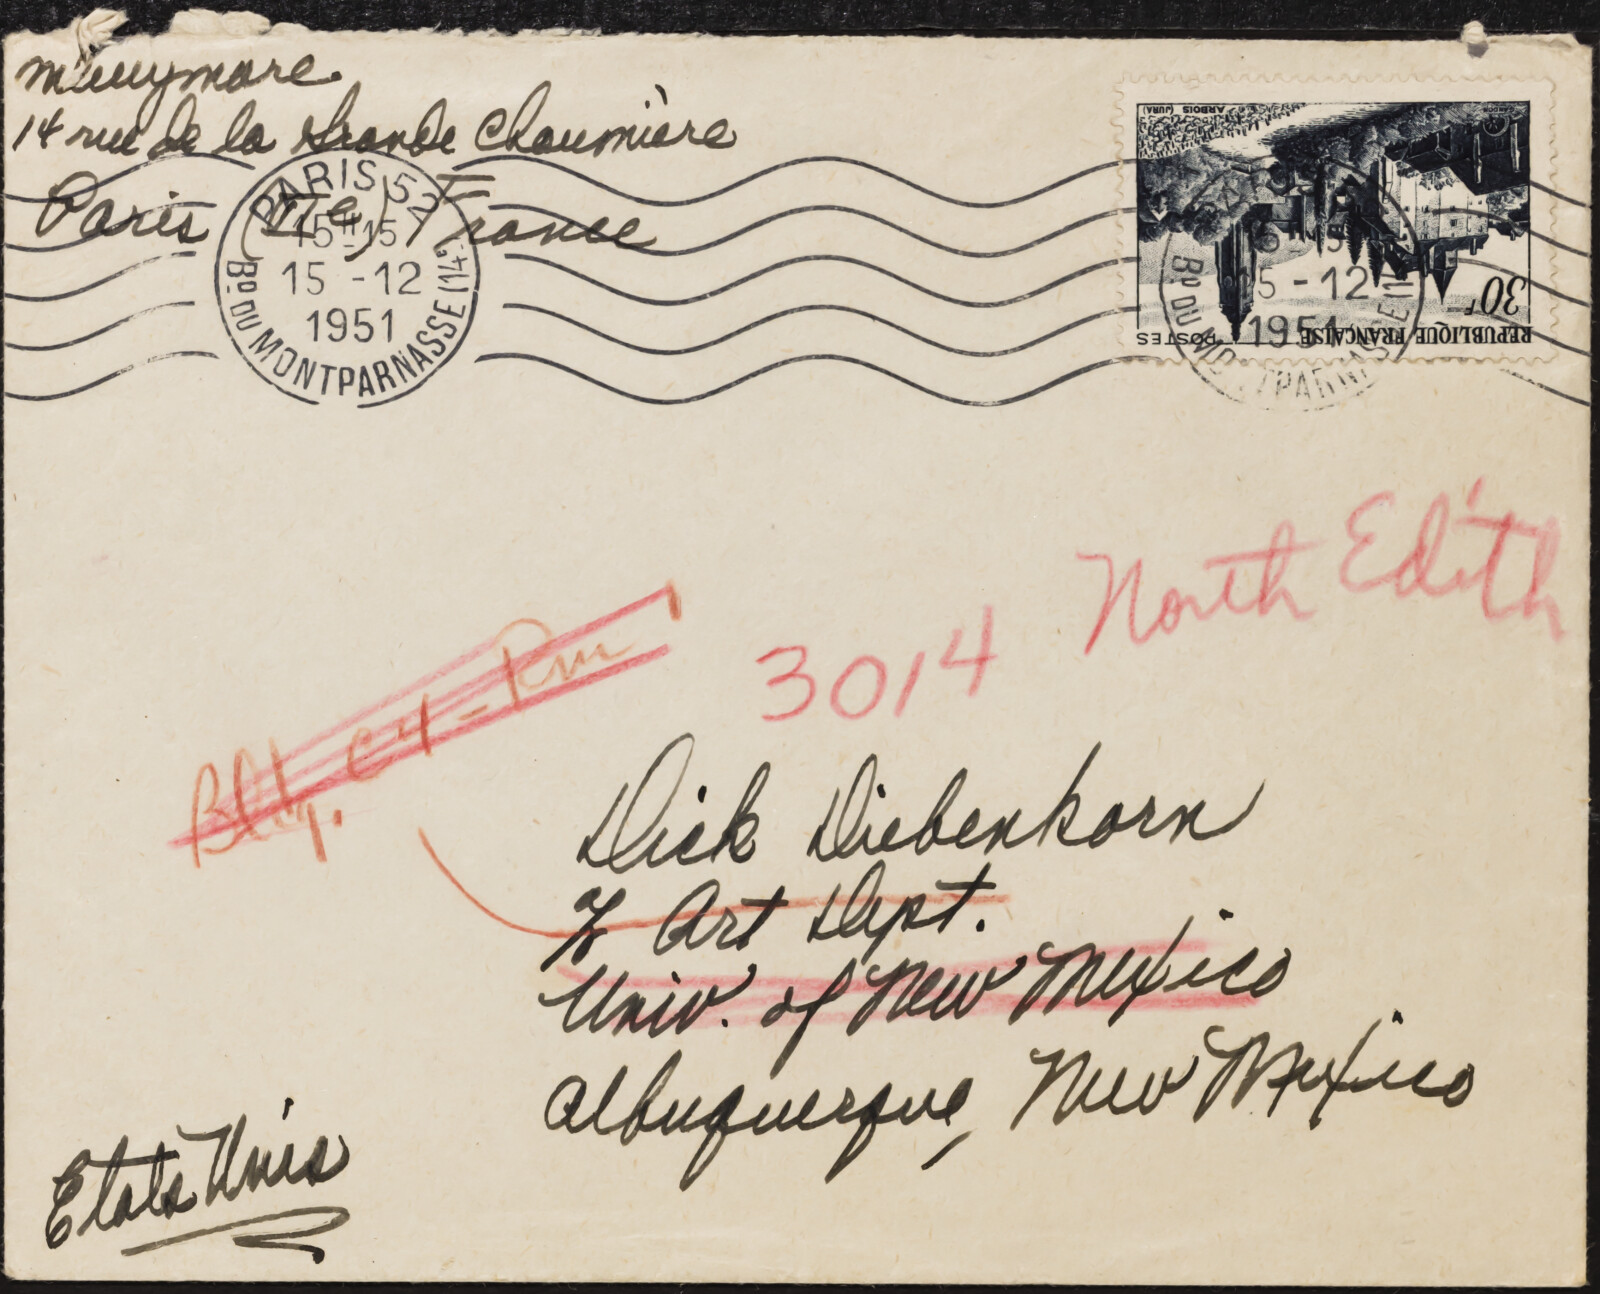 14 rue de la Grande Chaumière
Paris (VIe) France
PARIS 52
15H15
15 - 12
1951
Bd DU MONTPARNASSE (14e)
ARBOIS (JURA)
30F
POSTES RÉPUBLIQUE FRANÇAISE
15 - 12
1951
Bd DU MONTPARNASSE
3014 North Edith
Bldg. C4 - Rm
Dick Diebenkorn
% Art Dept.
Univ. of New Mexico
Albuquerque, New Mexico
Etats Unis